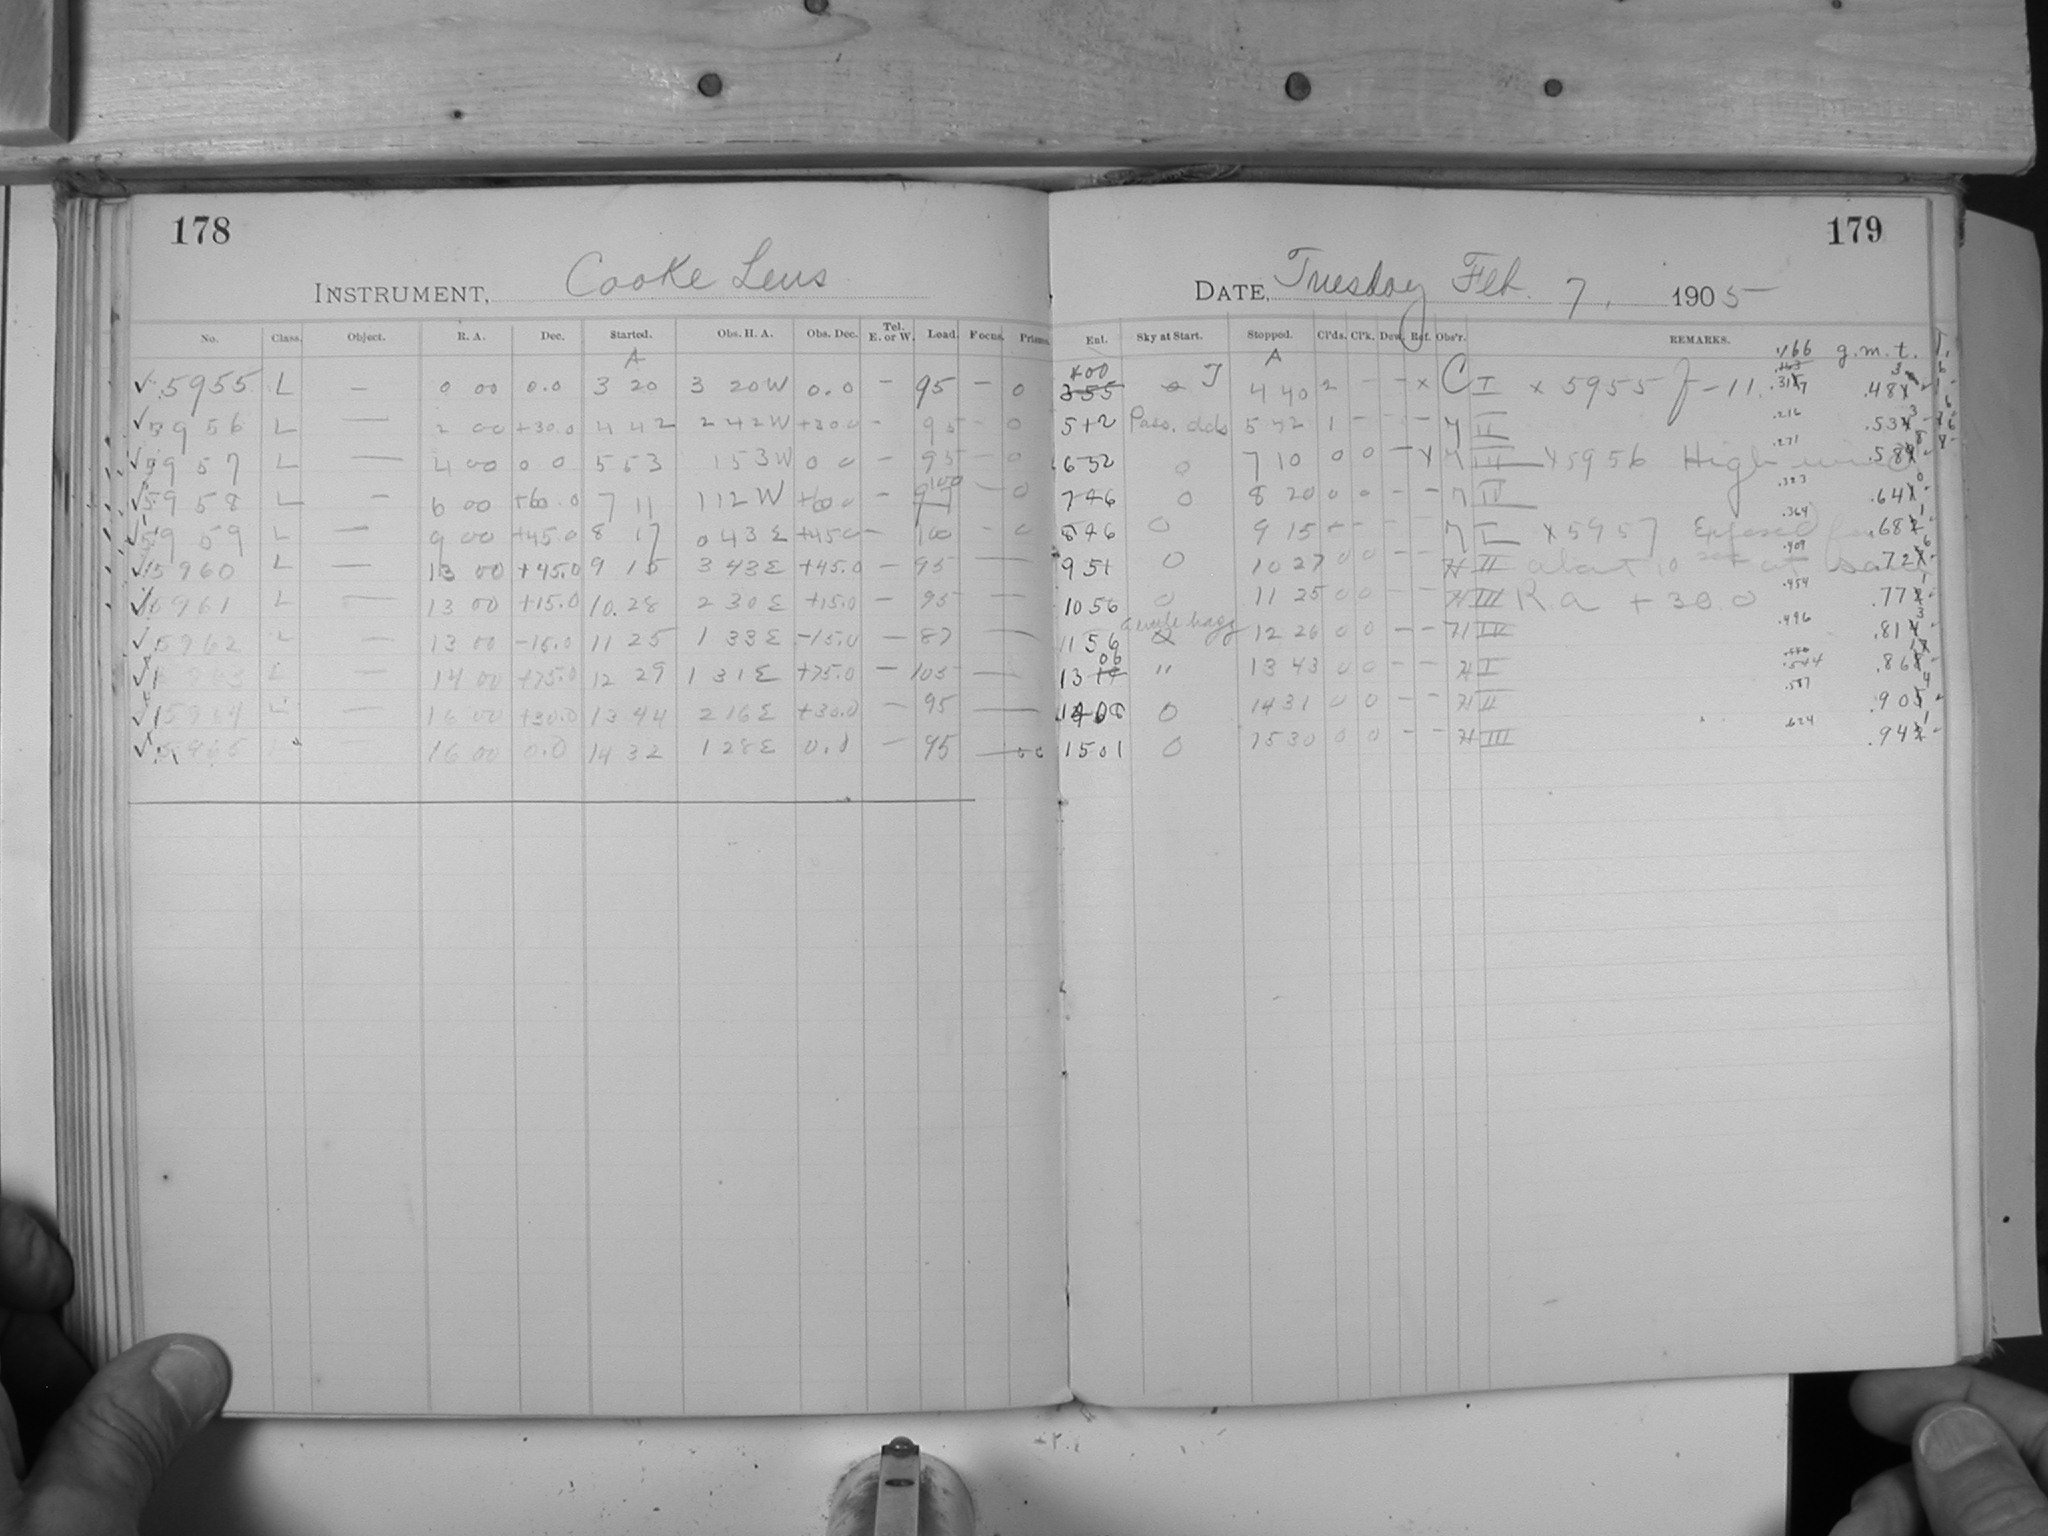 178
INSTRUMENT, Cooke Lens
No. Class. Object. R. A. Dec. Started. Obs. H. A. Obs. Dec. Tel. E. or W. Load. Focus. Prisms.
A
✓ 5955 L — 0 00 0.0 3 20 3 20W 0.0 — 95 — 0
✓ 5956 L — 2 00 +30.0 4 42 2 42W +30.0 — 95 — 0
✓ 5957 L — 4 00 0 0 5 53 1 53W 0 0 — 95 — 0
✓ 5958 L — 6 00 +60.0 7 11 1 12W +60.0 — 100 — 0
✓ 5959 L — 9 00 +45.0 8 17 0 43E +45.0 — 100 — 0
✓ 5960 L — 13 00 +45.0 9 15 3 43E +45.0 — 95 —
✓ 5961 L — 13 00 +15.0 10.28 2 30E +15.0 — 95 —
✓ 5962 L — 13 00 -15.0 11 25 1 33E -15.0 — 87 —
✓ L — 14 00 +75.0 12 29 1 31E +75.0 — 105 —
✓ 5964 L — 16 00 +30.0 13 44 2 16E +30.0 — 95 —
✓ 5965 — 16 00 0.0 14 32 1 28E 0.0 — 95 —
179
DATE, Tuesday Feb. 7, 1905
Ent. Sky at Start. Stopped. Cl'ds. Cl'k. Dew. Ref. Obs'r. REMARKS.
A .166 g.m.t.
400
355 T 4 40 2 — — x C I x 5955 f-11. .317 .48
512 Pass. clds 5 1 — — — II .216 .53
632 0 7 10 0 0 — x III x5956 High wind .271 .58
746 0 8 20 0 0 — — IV .64
846 0 9 15 — — — I x 5957 Exposed for .364 .68
951 0 10 27 0 0 — — H II about 10 at same .409 .72
1056 0 11 25 0 0 — — H III R a +30.0 .454 .77
1156 12 26 0 0 — — H IV .496 .81
13 06 " 13 43 0 0 — — H I .544 .86
1408 0 14 31 0 0 — — H II .587 .90
1501 0 15 30 0 0 — — H III .624 .94